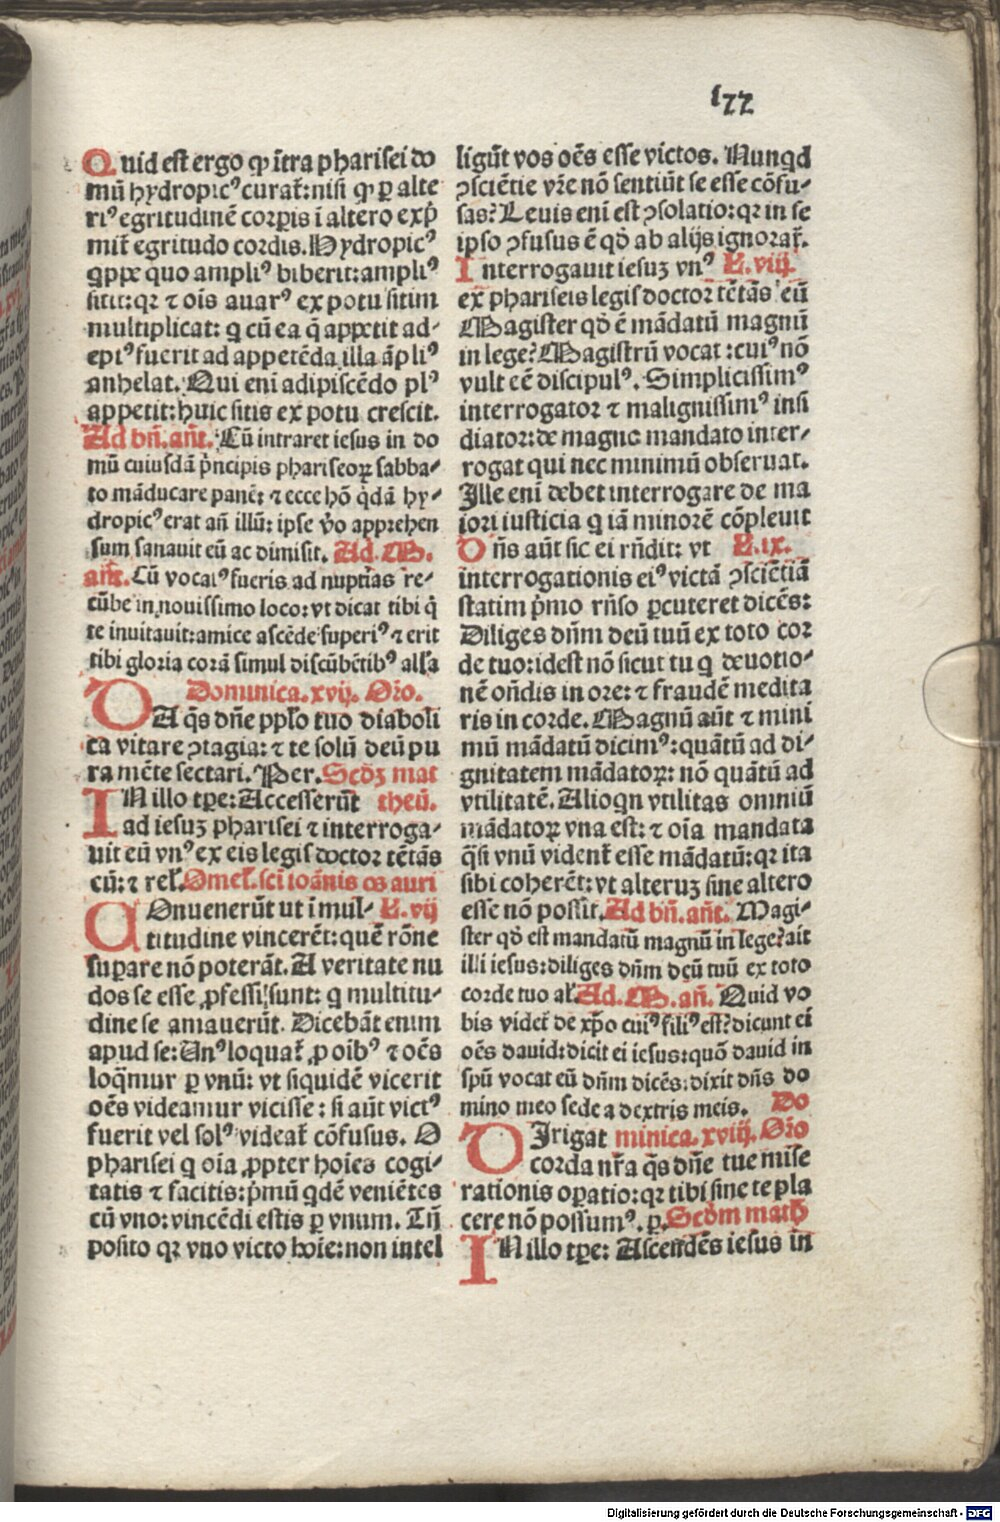 177
Quid est ergo ꝙ ĩtra pharisei do
mũ hydropicꝰ curat̃: nisi ꝙ ꝑ alte
riꝰ egritudinẽ corꝑis ĩ altero exp̃
mit̃ egritudo cordis. Hydropicꝰ
qͥppe quo ampliꝰ biberit: ampliꝰ
sitit: qꝛ ⁊ oĩs auarꝰ ex potu sitim
multiplicat: q̃ cũ ea q̃ appetit ad⸗
epiꝰ fuerit ad appetẽda illa ãpliꝰ
anhelat. Qui eni adipiscẽdo plꝰ
appetit: huic sitis ex potu crescit.
Ad bñ. añt. Cũ intraret iesus in do
mũ cuiusdã p̃ncipis phariseoꝝ sabba⸗
to mãducare panẽ: ⁊ ecce hõ q̃dã hy⸗
dropicꝰ erat añ illũ: ipse ṽo apprehen
sum sanauit eũ ac dimisit. Ad. M.
añt. Cũ vocatꝰ fueris ad nuptias re⸗
cũbe in nouissimo loco: vt dicat tibi q̃
te inuitauit: amice ascẽde superiꝰ ⁊ erit
tibi gloria corã simul discũbẽtibꝰ alľa
Dominica. xvij. Oro.
DA q̃s dñe ppľo tuo diaboli
ca vitare ꝯtagia: ⁊ te solũ deũ pu
ra mẽte sectari. Per. Secdꝫ mat
IN illo tp̃e: Accesserũt theũ.
ad iesuꝫ pharisei ⁊ interroga⸗
uit eũ vnꝰ ex eis legis doctor tẽtãs
eũ: ⁊ reľ. Omeľ. scĩ ioãnis os auri
COnuenerũt ut ĩ mul⸗ L. vij
titudine vincerẽt: quẽ rõne
suꝑare nõ poterãt. A veritate nu
dos se esse ꝓfessi sunt: q̃ multitu⸗
dine se armauerũt. Dicebãt enim
apud se: Vnꝰ loquat̃ ꝓ oibꝰ ⁊ oẽs
loq̃mur ꝑ vnũ: vt siquidẽ vicerit
oẽs videamur vicisse: si aũt victꝰ
fuerit vel solꝰ videat̃ cõfusus. O
pharisei q̃ oĩa ꝓpter hoĩes cogi⸗
tatis ⁊ facitis: p̃mũ q̃dẽ veniẽtes
cũ vno: vincẽdi estis ꝑ vnum. Tñ
posito qꝛ vno victo hoĩe: non intel
ligũt vos oẽs esse victos. Nunq̃d
ꝯsciẽtie vr̃e nõ sentiũt se esse cõfu⸗
sas? Leuis eni est ꝯsolatio: qꝛ in se
ipso ꝯfusus ẽ qd̃ ab alijs ignorat̃.
Interrogauit iesuꝫ vnꝰ L. viij.
ex phariseis legis doctor tẽtãs eũ
Magister qd̃ ẽ mãdatũ magnũ
in lege? Magistrũ vocat: cuiꝰ nõ
vult eẽ discipulꝰ. Simplicissimꝰ
interrogator ⁊ malignissimꝰ insi
diator: de magno mandato inter⸗
rogat qui nec minimũ obseruat.
Ille eni debet interrogare de ma
iori iusticia q̃ iã minorẽ cõpleuit
Dñs aũt sic ei rñdit: vt L. ix.
interrogationis eiꝰ victã ꝯsciẽtiã
statim p̃mo rñso ꝑcuteret dicẽs:
Diliges dñm deũ tuũ ex toto cor
de tuo: idest nõ sicut tu q̃ deuotio⸗
nẽ oñdis in ore: ⁊ fraudẽ medita
ris in corde. Magnũ aũt ⁊ mini
mũ mãdatũ dicimꝰ: quãtũ ad di⸗
gnitatem mãdatoꝝ: nõ quãtũ ad
vtilitatẽ. Alioqn vtilitas omniũ
mãdatoꝝ vna est: ⁊ oĩa mandata
q̃si vnũ vident̃ esse mãdatũ: qꝛ ita
sibi coherẽt: vt alteruꝫ sine altero
esse nõ possit. Ad bñ. añt. Magi⸗
ster qd̃ est mandatũ magnũ in lege? ait
illi iesus: diliges dñm deũ tuũ ex toto
corde tuo aľ. Ad. M. añ. Quid vo
bis videt̃ de xp̃o cuiꝰ filiꝰ est? dicunt ei
oẽs dauid: dicit ei iesus: quõ dauid in
spũ vocat eũ dñm dicẽs: dixit dñs do
mino meo sede a dextris meis. Do
DIrigat minica. xviij. Oro
corda nr̃a q̃s dñe tue mise
rationis oꝑatio: qꝛ tibi sine te pla
cere nõ possumꝰ. ꝑ. Secdm math
IN illo tp̃e: Ascendẽs iesus in
Digitalisierung gefördert durch die Deutsche Forschungsgemeinschaft - DFG